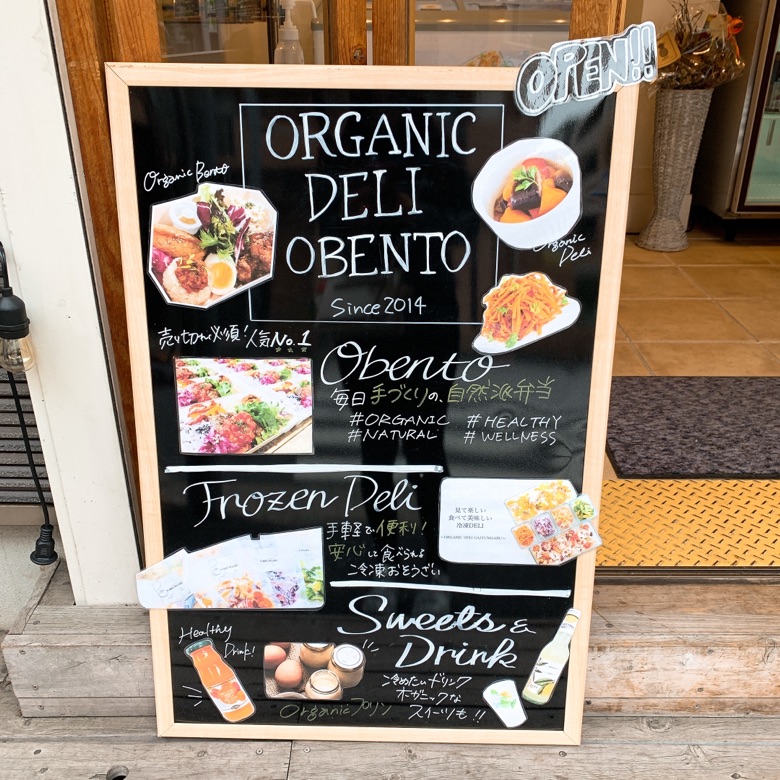 OPEN!!
ORGANIC
DELI
OBENTO
Since 2014
Organic Bento
Organic
Deli
売り切れ必須!人気No.1
Obento
毎日手づくりの、自然派弁当
#ORGANIC #HEALTHY
#NATURAL #WELLNESS
Frozen Deli
手軽で便利!
安心して食べられる
冷凍おそうざい
見て楽しい
食べて美味しい
冷凍DELI
Sweets &
Drink
Healthy
Drink!
冷めたいドリンク
オーガニックな
スイーツも!!
Organicプリン